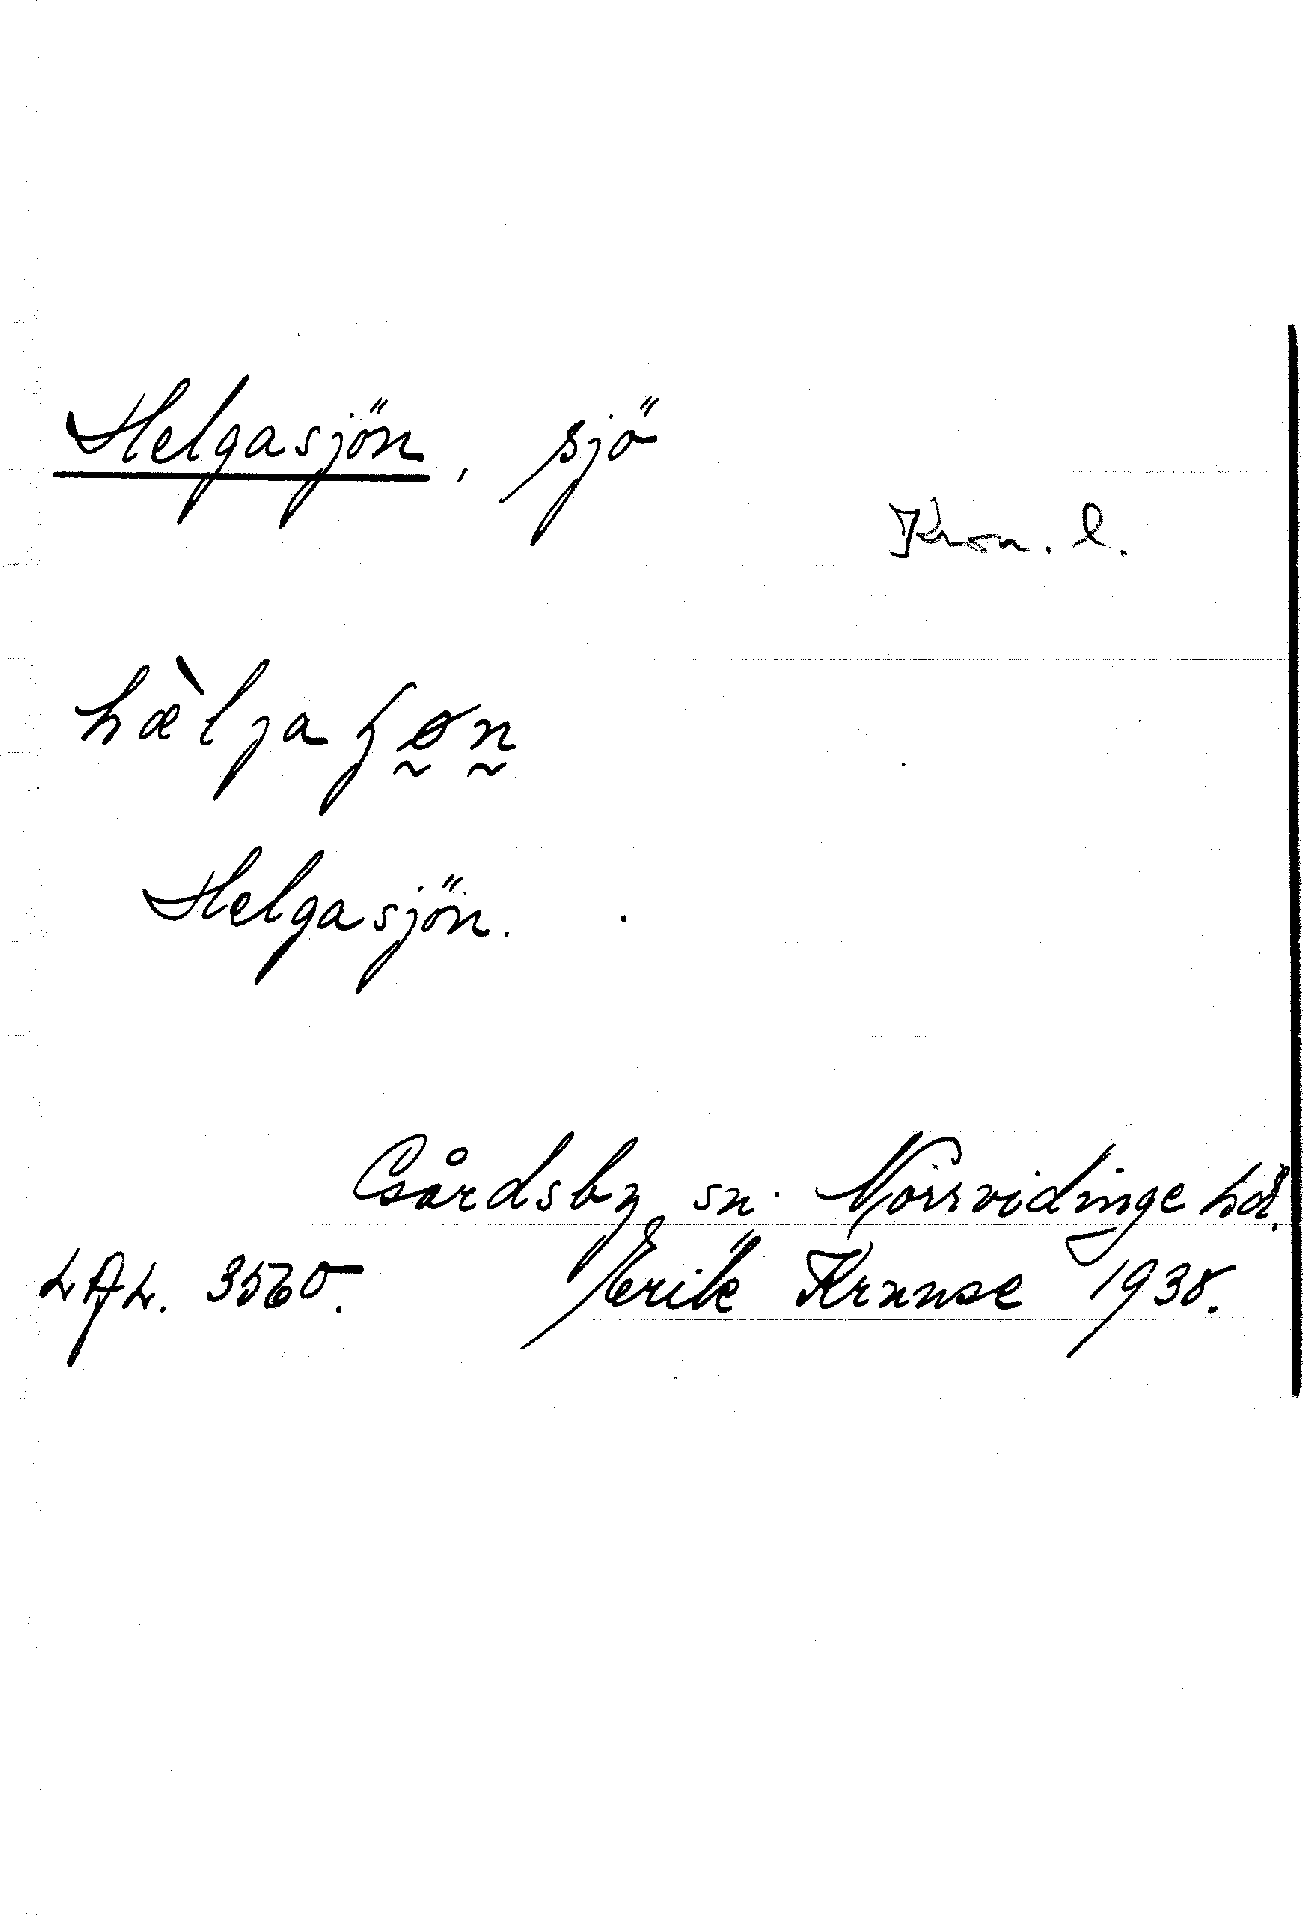 Helgasjön, sjö
Kron. l.
hæ̀lja ɧø̰n̰
Helgasjön.
Gårdsby sn. Norrvidinge hd.
LAL. 3560. Erik Kranse 1938.